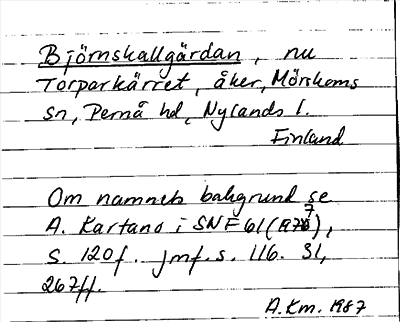 Björnskallgärdan, nu
Torparkärret, åker, Mörskoms
sn, Pernå hd, Nylands l.
Finland
Om namnets bakgrund se
A. Kartano i SNF 61 (1977),
s. 120f. jmf. s. 116. 31,
267ff.
A.Km. 1987